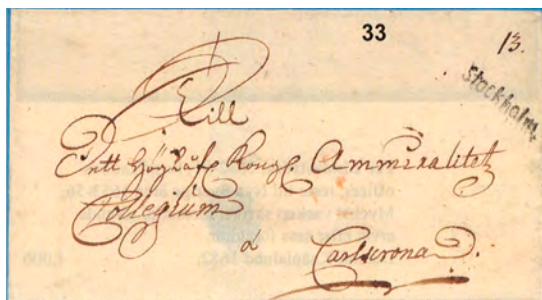 33
13.
Stockholm
Till
Ett Höglåfl. Kongl. Ammiralitetz
Collegium
à
Carlscrona.